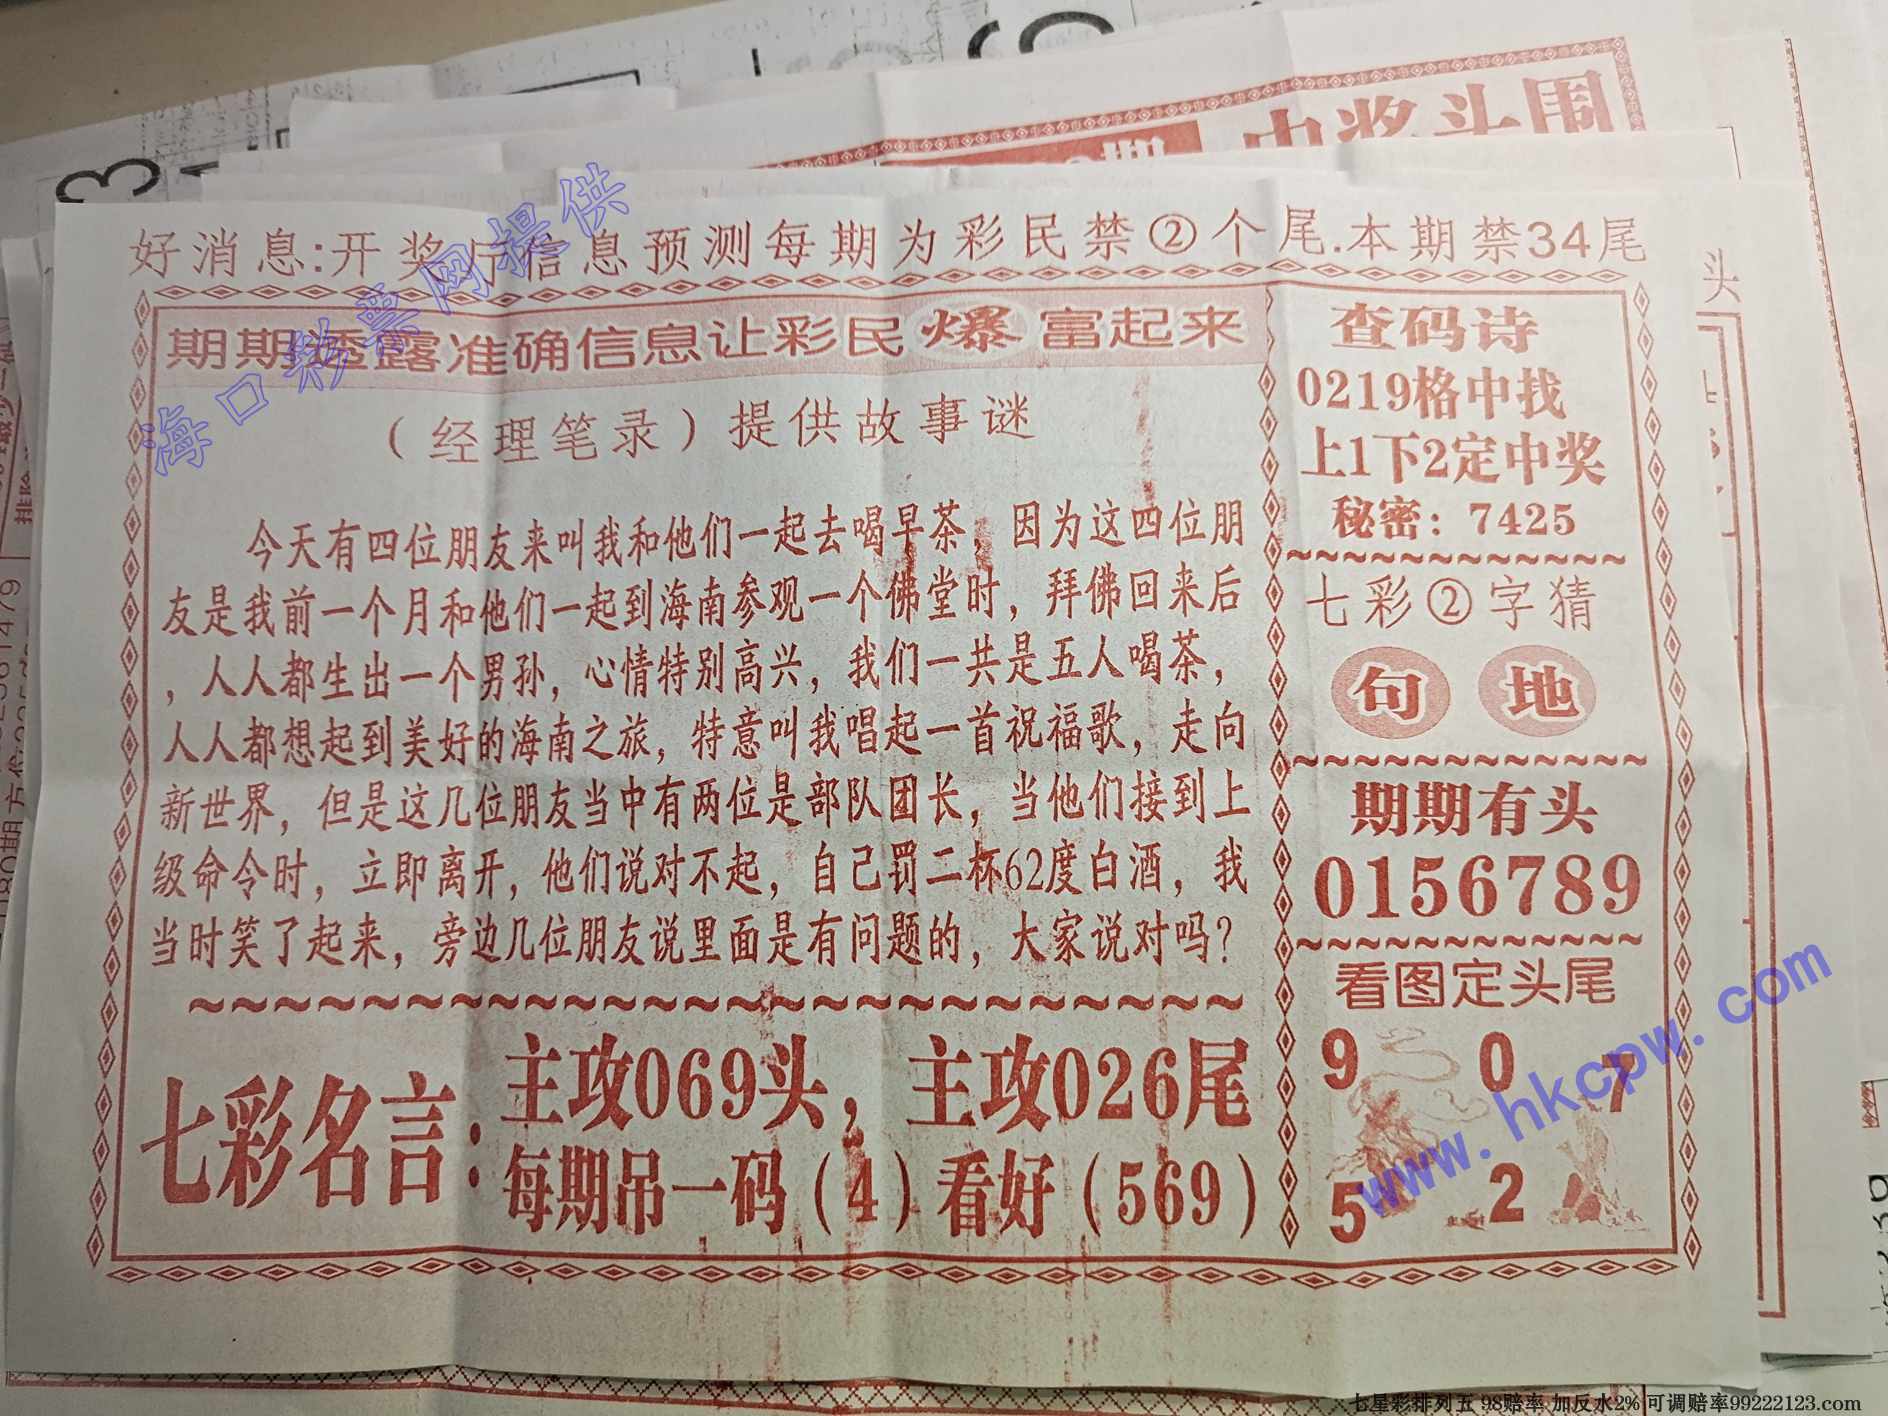 好消息:开奖厅信息预测每期为彩民禁②个尾.本期禁34尾
期期透露准确信息让彩民爆富起来
（经理笔录）提供故事谜
今天有四位朋友来叫我和他们一起去喝早茶，因为这四位朋
友是我前一个月和他们一起到海南参观一个佛堂时，拜佛回来后
，人人都生出一个男孙，心情特别高兴，我们一共是五人喝茶，
人人都想起到美好的海南之旅，特意叫我唱起一首祝福歌，走向
新世界，但是这几位朋友当中有两位是部队团长，当他们接到上
级命令时，立即离开，他们说对不起，自己罚二杯62度白酒，我
当时笑了起来，旁边几位朋友说里面是有问题的，大家说对吗？
七彩名言：
主攻069头，主攻026尾
每期吊一码（4）看好（569）
查码诗
0219格中找
上1下2定中奖
秘密：7425
七彩②字猜
句 地
期期有头
0156789
看图定头尾
9 0 7
5 2
海口彩票网提供
www.hkcpw.com
中奖头围
头
七星彩排列五 98赔率 加反水2% 可调赔率99222123.com